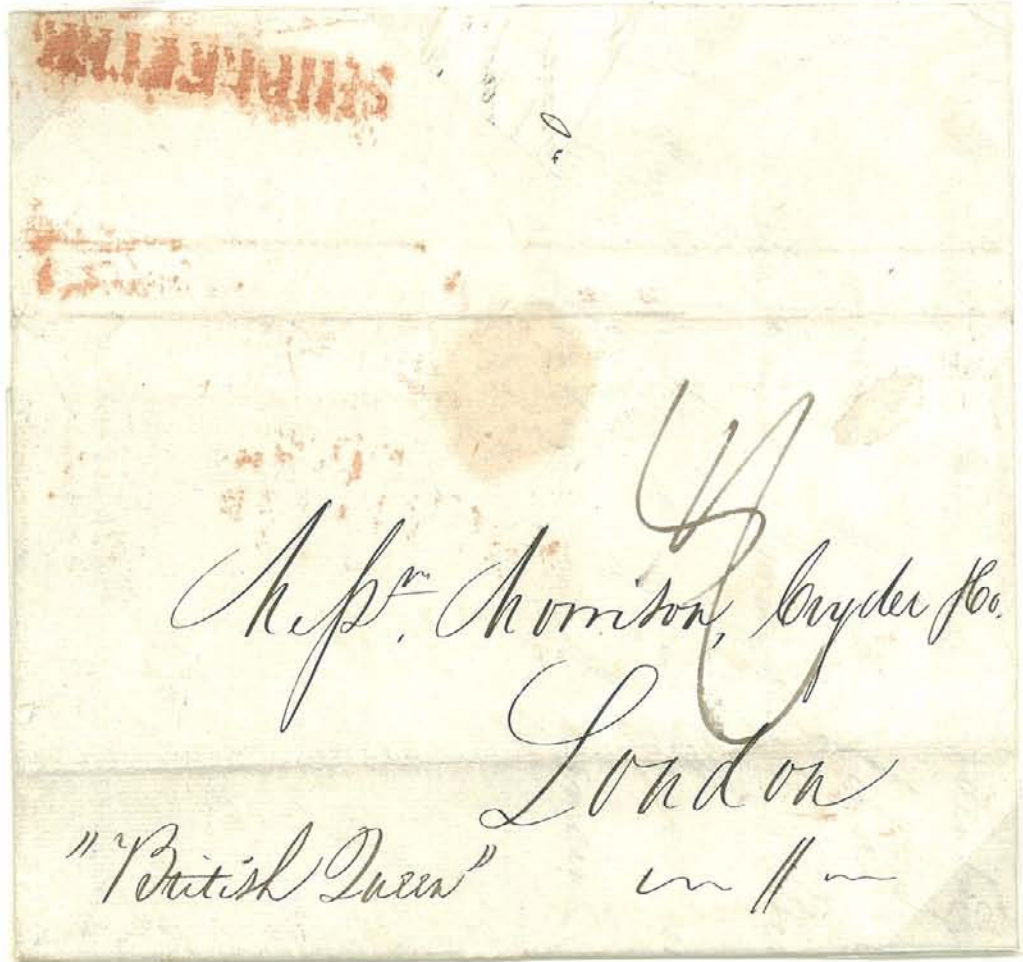 SHIP LETTER
Messrs. Morrison, Cryder & Co.
London
"British Queen"